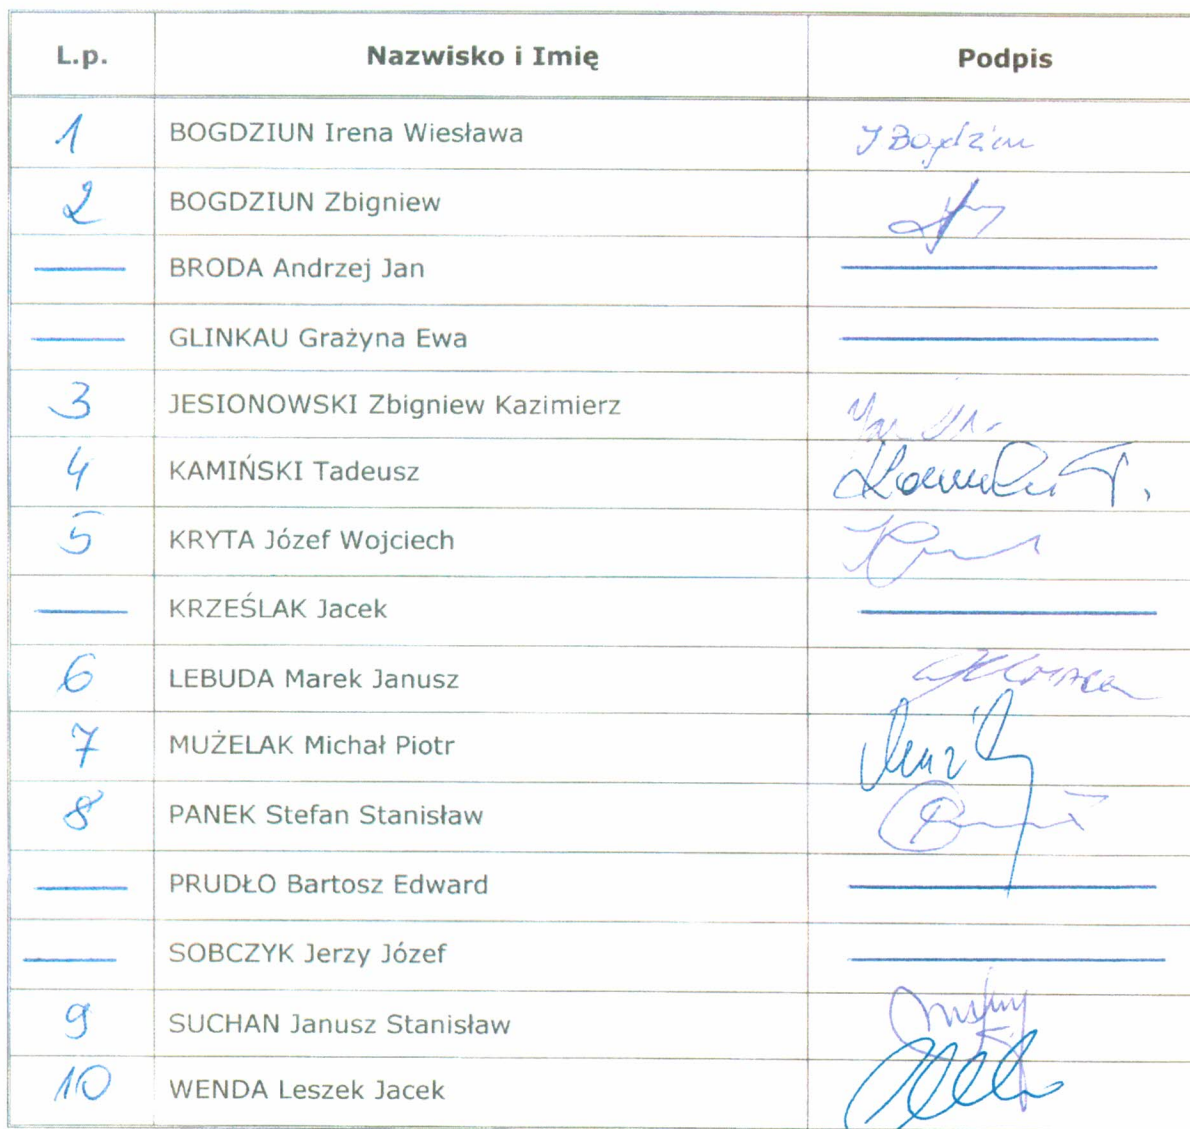 L.p. Nazwisko i Imię Podpis
1 BOGDZIUN Irena Wiesława
2 BOGDZIUN Zbigniew
BRODA Andrzej Jan
GLINKAU Grażyna Ewa
3 JESIONOWSKI Zbigniew Kazimierz
4 KAMIŃSKI Tadeusz
5 KRYTA Józef Wojciech
KRZEŚLAK Jacek
6 LEBUDA Marek Janusz
7 MUŻELAK Michał Piotr
8 PANEK Stefan Stanisław
PRUDŁO Bartosz Edward
SOBCZYK Jerzy Józef
9 SUCHAN Janusz Stanisław
10 WENDA Leszek Jacek